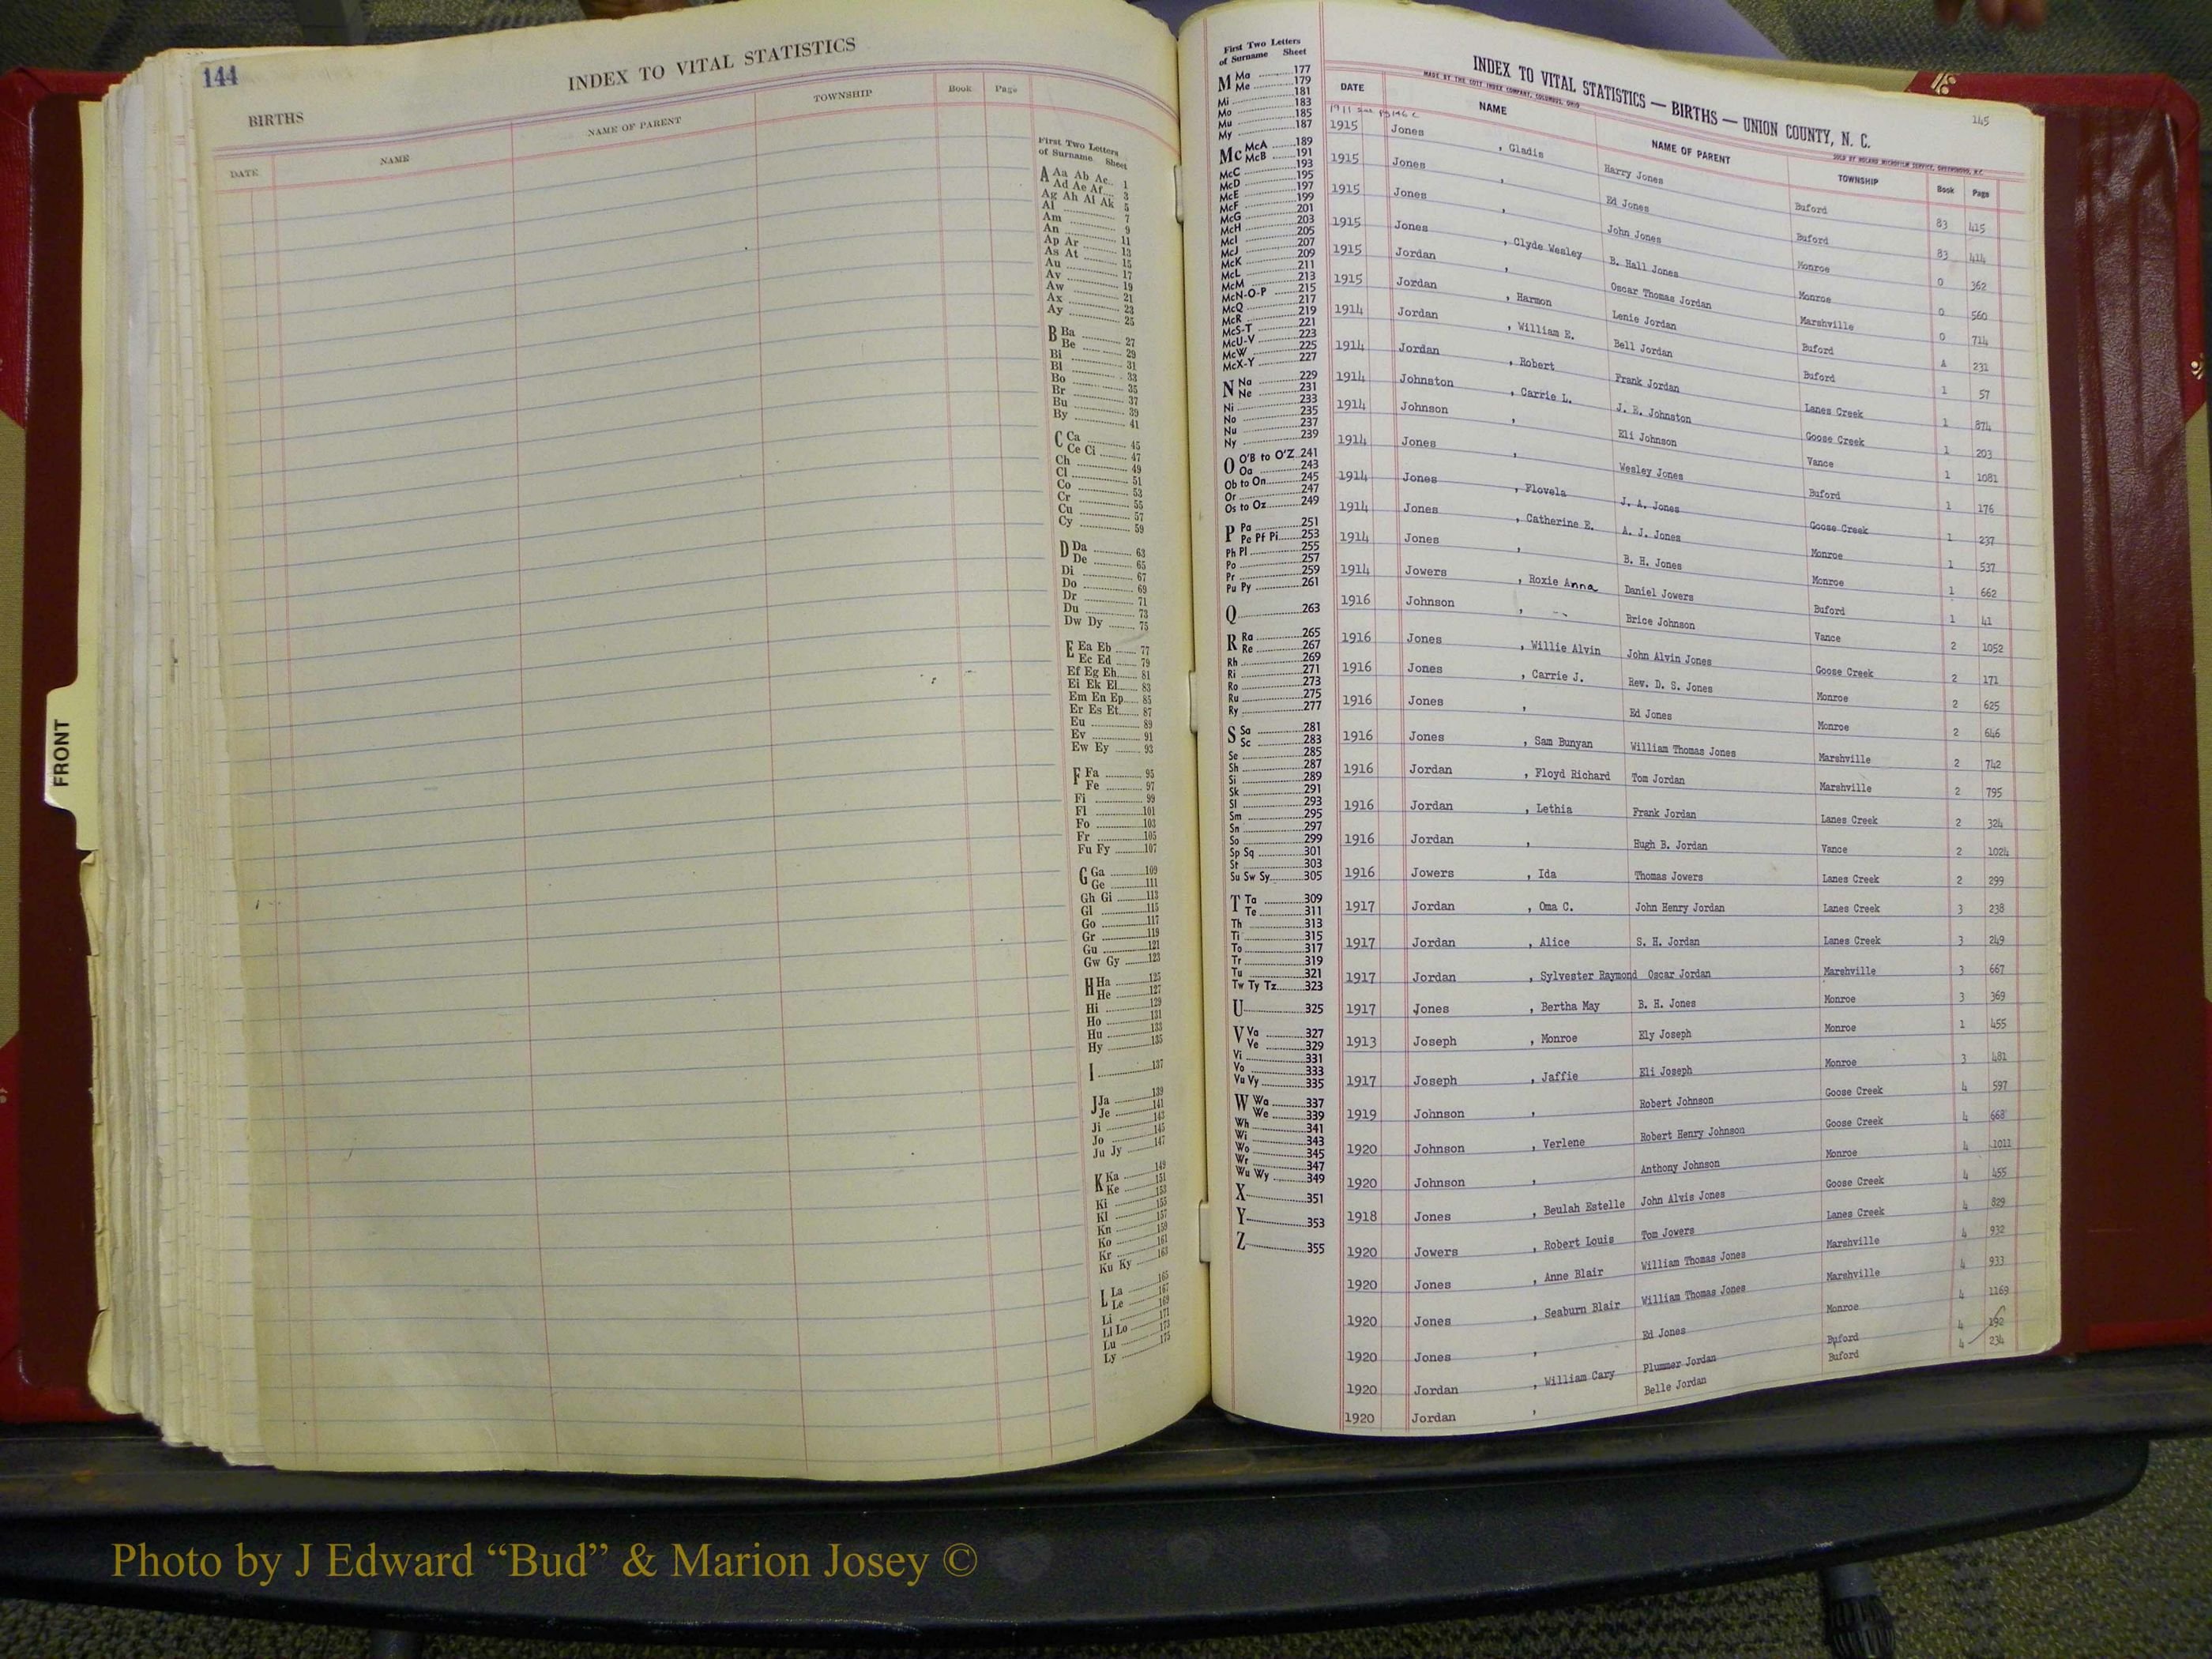 144
INDEX TO VITAL STATISTICS
BIRTHS
DATE NAME NAME OF PARENT TOWNSHIP Book Page
First Two Letters
of Surname Sheet
A Aa Ab Ac 1
Ad Ae Af 3
Ag Ah Ai Ak 5
Al 7
Am 9
An 11
Ap Ar 13
As At 15
Au 17
Av 19
Aw 21
Ax 23
Ay 25
B Ba 27
Be 29
Bi 31
Bl 33
Bo 35
Br 37
Bu 39
By 41
C Ca 45
Ce Ci 47
Ch 49
Cl 51
Co 53
Cr 55
Cu 57
Cy 59
D Da 63
De 65
Di 67
Do 69
Dr 71
Du 73
Dw Dy 75
E Ea Eb 77
Ec Ed 79
Ef Eg Eh 81
Ei Ek El 83
Em En Ep 85
Er Es Et 87
Eu 89
Ev 91
Ew Ey 93
F Fa 95
Fe 97
Fi 99
Fl 101
Fo 103
Fr 105
Fu Fy 107
G Ga 109
Ge 111
Gh Gi 113
Gl 115
Go 117
Gr 119
Gu 121
Gw Gy 123
H Ha 125
He 127
Hi 129
Ho 131
Hu 133
Hy 135
I 137
J Ja 139
Je 141
Ji 143
Jo 145
Ju Jy 147
K Ka 149
Ke 151
Ki 153
Kl 155
Kn 157
Ko 159
Kr 161
Ku Ky 163
L La 165
Le 167
Li 169
Ll Lo 171
Lu 173
Ly 175
FRONT
First Two Letters
of Surname Sheet
M Ma 177
Me 179
Mi 181
Mo 183
Mu 185
My 187
Mc McA 189
McB 191
McC 193
McD 195
McE 197
McF 199
McG 201
McH 203
McI 205
McJ 207
McK 209
McL 211
McM 213
McN-O-P 215
McQ 217
McR 219
McS-T 221
McU-V 223
McW 225
McX-Y 227
N Na 229
Ne 231
Ni 233
No 235
Nu 237
Ny 239
O O'B to O'Z 241
Oa 243
Ob to On 245
Or 247
Os to Oz 249
P Pa 251
Pe Pf Pi 253
Ph Pl 255
Po 257
Pr 259
Pu Py 261
Q 263
R Ra 265
Re 267
Rh 269
Ri 271
Ro 273
Ru 275
Ry 277
S Sa 281
Sc 283
Se 285
Sh 287
Si 289
Sk 291
Sl 293
Sm 295
Sn 297
So 299
Sp Sq 301
St 303
Su Sw Sy 305
T Ta 309
Te 311
Th 313
Ti 315
To 317
Tr 319
Tu 321
Tw Ty Tz 323
U 325
V Va 327
Ve 329
Vi 331
Vo 333
Vu Vy 335
W Wa 337
We 339
Wh 341
Wi 343
Wo 345
Wr 347
Wu Wy 349
X 351
Y 353
Z 355
INDEX TO VITAL STATISTICS — BIRTHS — UNION COUNTY, N. C.
145
MADE BY THE COTT INDEX COMPANY, COLUMBUS, OHIO
SOLD BY ROLAND MICROFILM SERVICE, GREENSBORO, N.C.
DATE NAME NAME OF PARENT TOWNSHIP Book Page
1911 see
1915 Jones , Gladis Harry Jones Buford 83 415
1915 Jones , Ed Jones Buford 83 414
1915 Jones , John Jones Monroe 0 362
1915 Jones , Clyde Wesley B. Hall Jones Monroe 0 560
1915 Jordan , Oscar Thomas Jordan Marshville 0 714
1915 Jordan , Harmon Lenie Jordan Buford A 231
1914 Jordan , William E. Bell Jordan Buford 1 57
1914 Jordan , Robert Frank Jordan Lanes Creek 1 874
1914 Johnston , Carrie L. J. E. Johnston Goose Creek 1 203
1914 Johnson , Eli Johnson Vance 1 1081
1914 Jones , Wesley Jones Buford 1 176
1914 Jones , Flovela J. A. Jones Goose Creek 1 237
1914 Jones , Catherine E. A. J. Jones Monroe 1 537
1914 Jones , B. H. Jones Monroe 1 662
1914 Jowers , Roxie Anna Daniel Jowers Buford 1 41
1916 Johnson , Brice Johnson Vance 2 1052
1916 Jones , Willie Alvin John Alvin Jones Goose Creek 2 171
1916 Jones , Carrie J. Rev. D. S. Jones Monroe 2 625
1916 Jones , Ed Jones Monroe 2 646
1916 Jones , Sam Bunyan William Thomas Jones Marshville 2 742
1916 Jordan , Floyd Richard Tom Jordan Marshville 2 795
1916 Jordan , Lethia Frank Jordan Lanes Creek 2 324
1916 Jordan , Hugh B. Jordan Vance 2 1024
1916 Jowers , Ida Thomas Jowers Lanes Creek 2 299
1917 Jordan , Oma C. John Henry Jordan Lanes Creek 3 238
1917 Jordan , Alice S. H. Jordan Lanes Creek 3 249
1917 Jordan , Sylvester Raymond Oscar Jordan Marshville 3 667
1917 Jones , Bertha May B. H. Jones Monroe 3 369
1913 Joseph , Monroe Ely Joseph Monroe 1 455
1917 Joseph , Jaffie Eli Joseph Monroe 3 481
1919 Johnson , Robert Johnson Goose Creek 4 597
1920 Johnson , Verlene Robert Henry Johnson Goose Creek 4 668
1920 Johnson , Anthony Johnson Monroe 4 1011
1918 Jones , Beulah Estelle John Alvis Jones Goose Creek 4 455
1920 Jowers , Robert Louis Tom Jowers Lanes Creek 4 829
1920 Jones , Anne Blair William Thomas Jones Marshville 4 932
1920 Jones , Seaburn Blair William Thomas Jones Marshville 4 933
1920 Jones , Ed Jones Monroe 4 1169
1920 Jordan , William Cary Plummer Jordan Buford 4 192
1920 Jordan , Belle Jordan Buford 4 234
Photo by J Edward “Bud” & Marion Josey ©